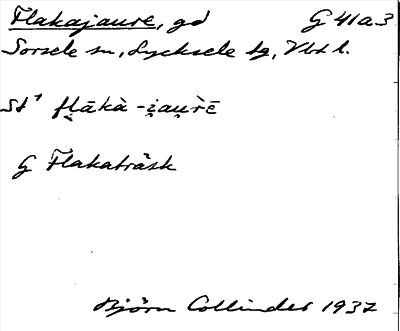 Flakajaure, gd G 41a3
Sorsele sn, Lycksele tg, Vbt l.
St¹ fḷākà-i̯au̯rè̄
G Flakaträsk
Björn Collinder 1937